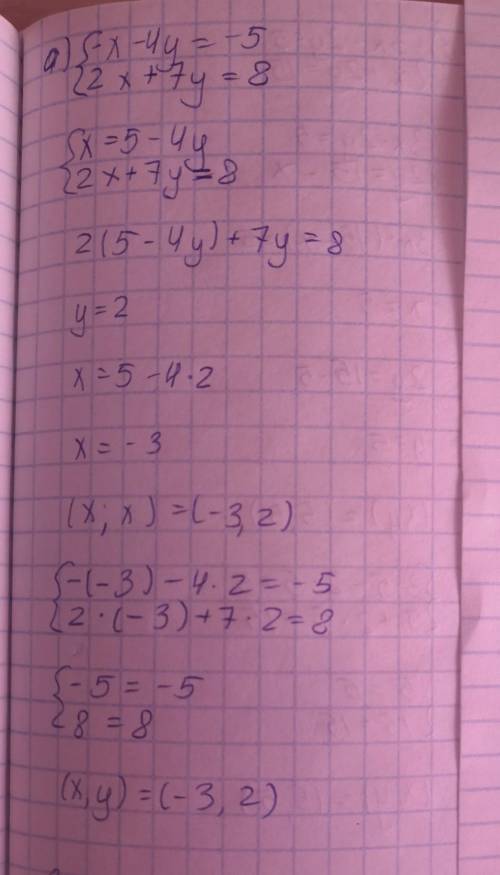 а) {-x - 4y = -5
{2x + 7y = 8
{x = 5 - 4y
{2x + 7y = 8
2(5 - 4y) + 7y = 8
y = 2
x = 5 - 4 · 2
x = - 3
(x; x) = (-3, 2)
{-(-3) - 4 · 2 = - 5
{2 · (-3) + 7 · 2 = 8
{-5 = -5
{8 = 8
(x, y) = (-3, 2)